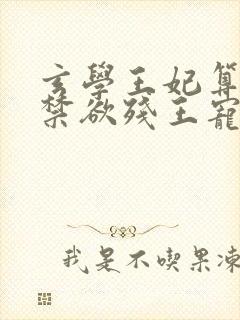 玄學王妃算
禁欲殘王寵
我是不喫果凍